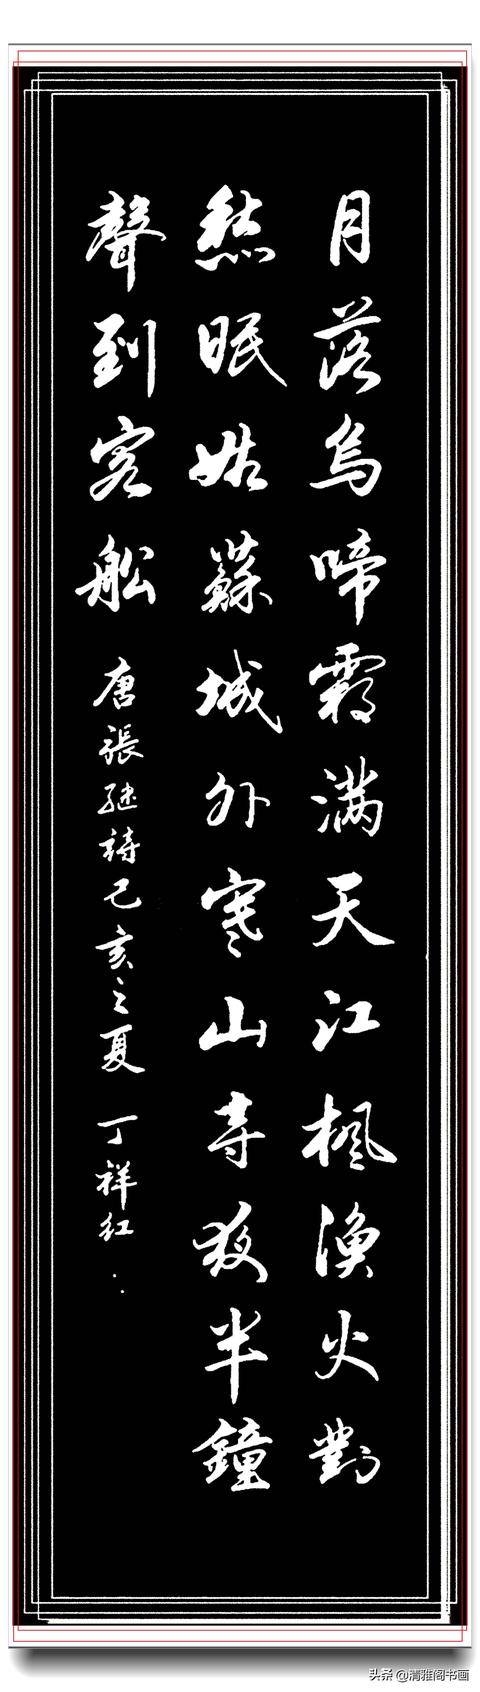 月落烏啼霜满天江楓漁火對
愁眠姑蘇城外寒山寺夜半鐘
聲到客船
唐張继詩己亥之夏 丁祥红
头条 @清雅阁书画